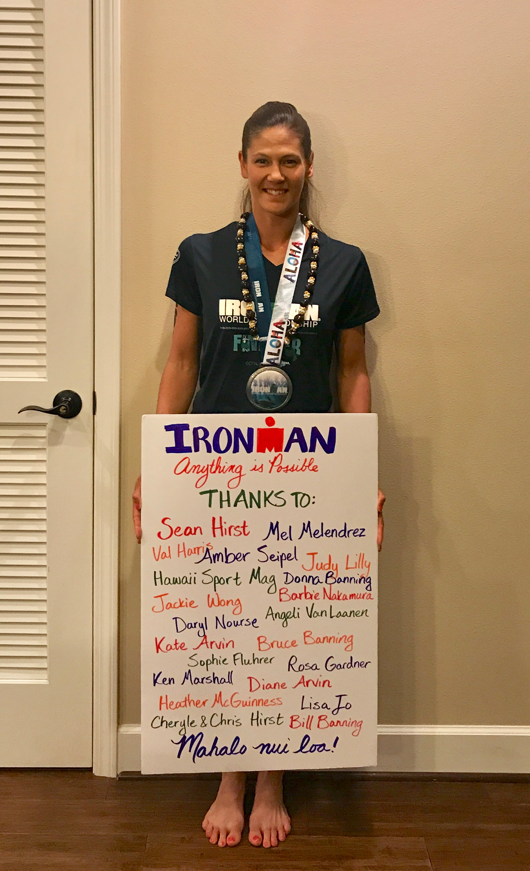 ALOHA
IRON
MAN
IRONMAN
WORLD CHAMPIONSHIP
ALOHA
FINISHER
IRONMAN
IRONMAN
Anything is Possible
THANKS TO:
Sean Hirst Mel Melendrez
Val Harris Amber Seipel Judy Lilly
Hawaii Sport Mag Donna Banning
Jackie Wong Barbie Nakamura
Daryl Nourse Angeli Van Laanen
Kate Arvin Bruce Banning
Sophie Fluhrer Rosa Gardner
Ken Marshall Diane Arvin
Heather McGuinness Lisa Jo
Cheryle & Chris Hirst Bill Banning
Mahalo nui loa!